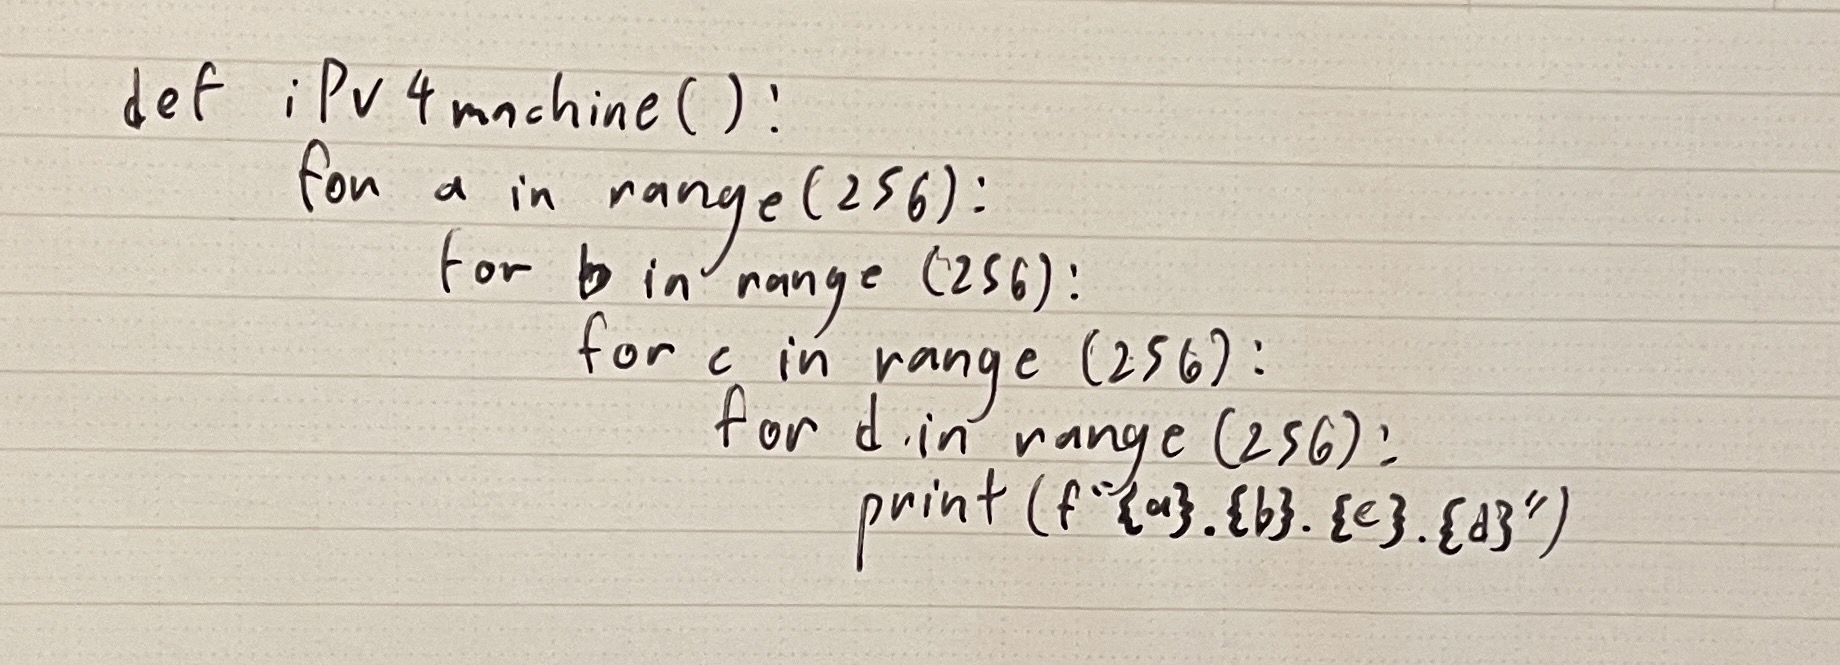 def iPv4machine():
for a in range(256):
for b in range (256):
for c in range (256):
for d in range (256):
print (f"{a}.{b}.{c}.{d}")